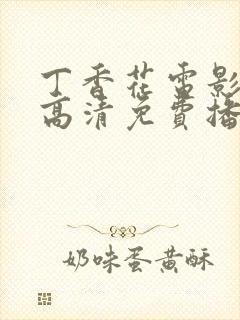 丁香花雷影
高清免費播
奶味蛋黃酥